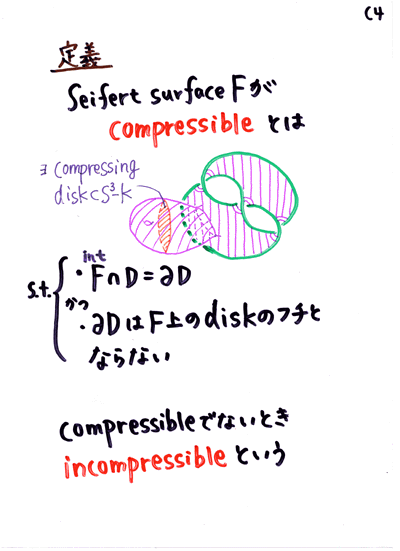 C4
定義
Seifert surface Fが
compressible とは
∃ compressing
disk⊂S³-K
int
s.t. ・F∩D=∂D
かつ
・∂DはF上のdiskのフチと
ならない
compressibleでないとき
incompressible という